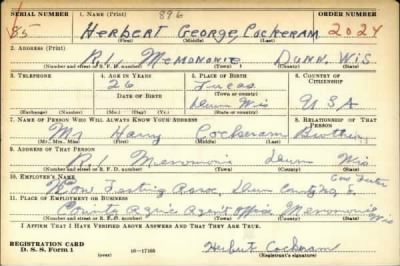 SERIAL NUMBER 1. NAME (Print) 896 ORDER NUMBER
85 Herbert George Cockeram 2024
(First) (Middle) (Last)
2. ADDRESS (Print)
R1 Memomonie Dunn, Wis.
(Number and street or R. F. D. number) (Town) (County) (State)
3. TELEPHONE 4. AGE IN YEARS 5. PLACE OF BIRTH 6. COUNTRY OF CITIZENSHIP
26 Lucas
(Town or county)
DATE OF BIRTH Dunn Wis USA
(Exchange) (Number) (Mo.) (Day) (Yr.) (State or country)
7. NAME OF PERSON WHO WILL ALWAYS KNOW YOUR ADDRESS 8. RELATIONSHIP OF THAT PERSON
Mr Harry Cockeram Brother
(Mr., Mrs., Miss) (First) (Middle) (Last)
9. ADDRESS OF THAT PERSON
R1 Menomonie Dunn Wis
(Number and street or R. F. D. number) (Town) (County) (State)
10. EMPLOYER'S NAME Cow Tester
Cow Testing Assoc. Dunn County No
11. PLACE OF EMPLOYMENT OR BUSINESS
County Agric Agent Office Menomonie Wis
(Number and street or R. F. D. number) (Town) (County) (State)
I AFFIRM THAT I HAVE VERIFIED ABOVE ANSWERS AND THAT THEY ARE TRUE.
REGISTRATION CARD
D. S. S. Form 1 16—17105 Herbert Cockram
(over) (Registrant's signature)